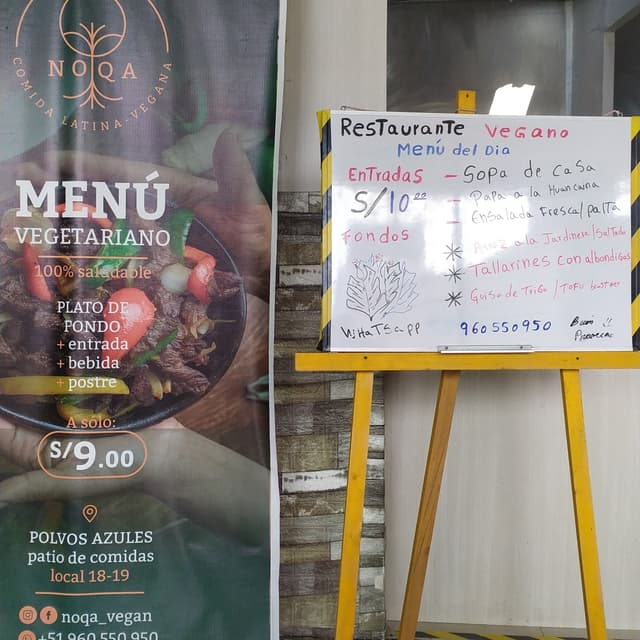 NOQA
COMIDA LATINA-VEGANA
MENÚ
VEGETARIANO
100% saludable
PLATO DE
FONDO
+ entrada
+ bebida
+ postre
A sólo:
S/9.00
POLVOS AZULES
patio de comidas
local 18-19
noqa_vegan
+51 960 550 950
ResTauranTe Vegano
Menú del Dia
EnTradas - Sopa de casa
S/10.00 - Papa a la Huancaina
- Ensalada Fresca/palta
Fondos * Arroz a la Jardinera/Saltado
* Tallarines con albondigas
* Guiso de Trigo / TOFU
WHaTSapp 960 550 950 Buen